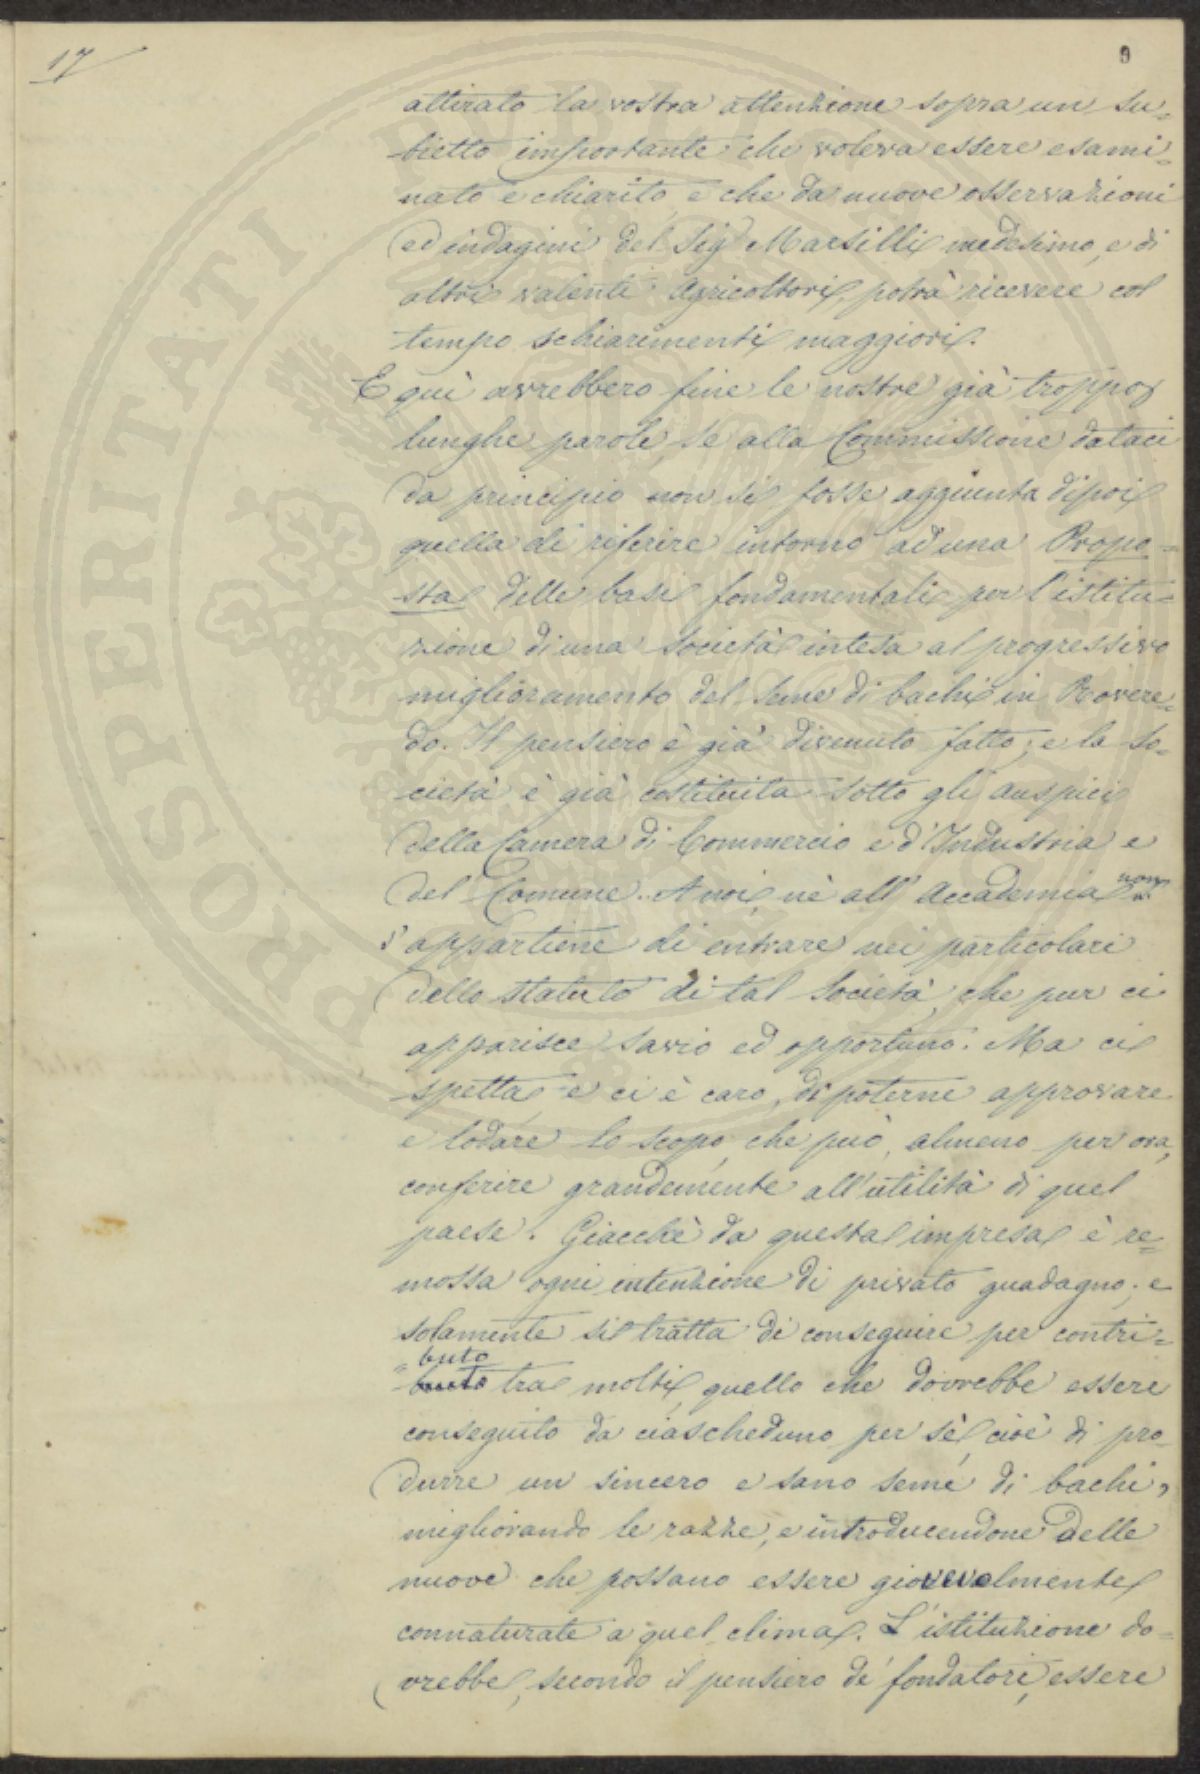 17
9
attirato la vostra attenzione sopra un su=
bietto importante che voleva essere esami=
nato e chiarito, e che da nuove osservazioni
ed indagini del Sig.r Marsilli medesimo, e di
altri valenti Agricoltori, potrà ricevere col
tempo schiarimenti maggiori.
E quì avrebbero fine le nostre già troppo
lunghe parole, se alla Commissione dataci
da principio non si fosse aggiunta dipoi
quella di riferire intorno ad una Propo=
sta delle basi fondamentali per l'istitu=
zione di una Società intesa al progressivo
miglioramento del seme di bachi in Rovere=
do. Il pensiero è già divenuto fatto; e la So=
cietà è già costituita sotto gli auspici
della Camera di Commercio e d'Industria e
del Comune. A noi, nè all'Accademia non
s'appartiene di entrare nei particolari
dello statuto di tal Società, che pur ci
apparisce savio ed opportuno. Ma ci
spetta, e ci è caro, di poterne approvare
e lodare lo scopo, che può, almeno per ora,
conferire grandemente all'utilità di quel
paese. Giacchè da questa impresa è re=
mossa ogni intenzione di privato guadagno; e
solamente si tratta di conseguire per contri=
=buto
buto tra molti, quello che dovrebbe essere
conseguito da ciascheduno per sè, cioè di pro=
durre un sincero e sano seme di bachi,
migliorando le razze, e introducendone delle
nuove che possano essere giovevolmente
connaturate a quel clima. L'istituzione do=
vrebbe, secondo il pensiero de' fondatori, essere
PROSPERITATI PVBLICAE